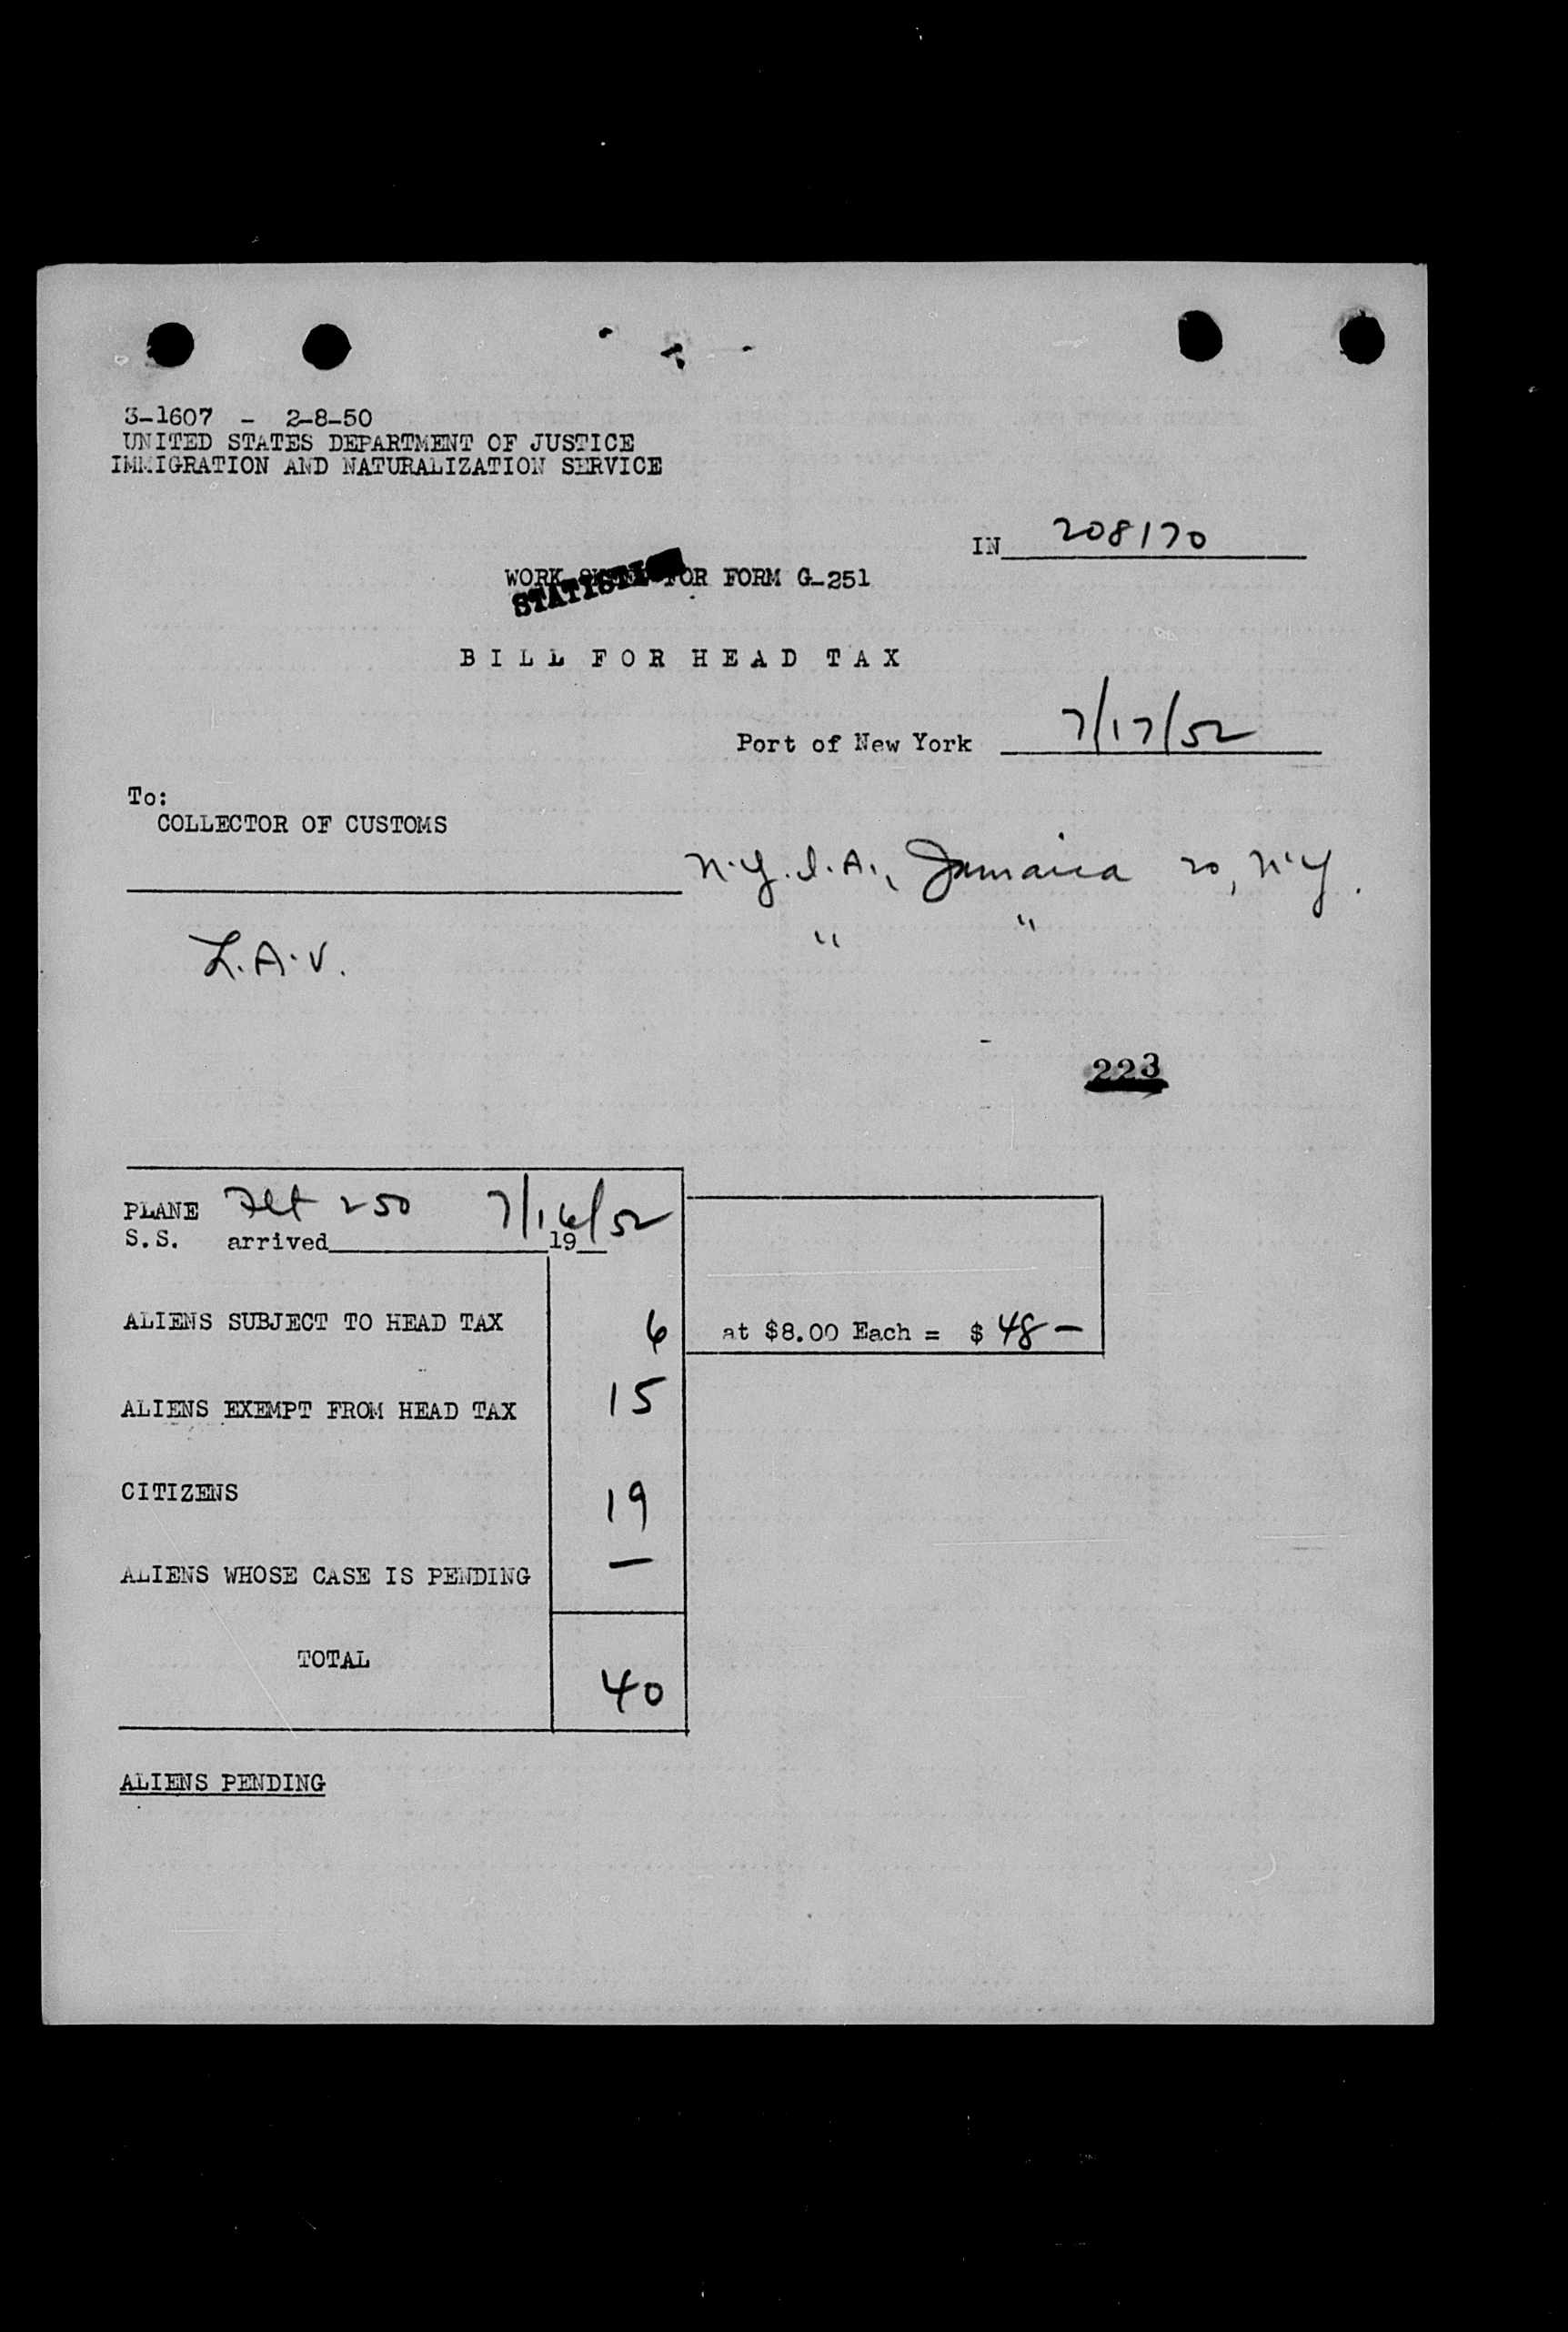 3-1607 - 2-8-50
UNITED STATES DEPARTMENT OF JUSTICE
IMMIGRATION AND NATURALIZATION SERVICE
IN 208170
WORK SHEET FOR FORM G-251
STATISTICS
BILL FOR HEAD TAX
Port of New York 7/17/52
To:
COLLECTOR OF CUSTOMS
N.Y.I.A., Jamaica 20, N.Y.
L.A.V. " "
223
PLANE Flt 250 7/16/52
S.S. arrived 19
ALIENS SUBJECT TO HEAD TAX 6 at $8.00 Each = $ 48 -
ALIENS EXEMPT FROM HEAD TAX 15
CITIZENS 19
ALIENS WHOSE CASE IS PENDING —
TOTAL 40
ALIENS PENDING